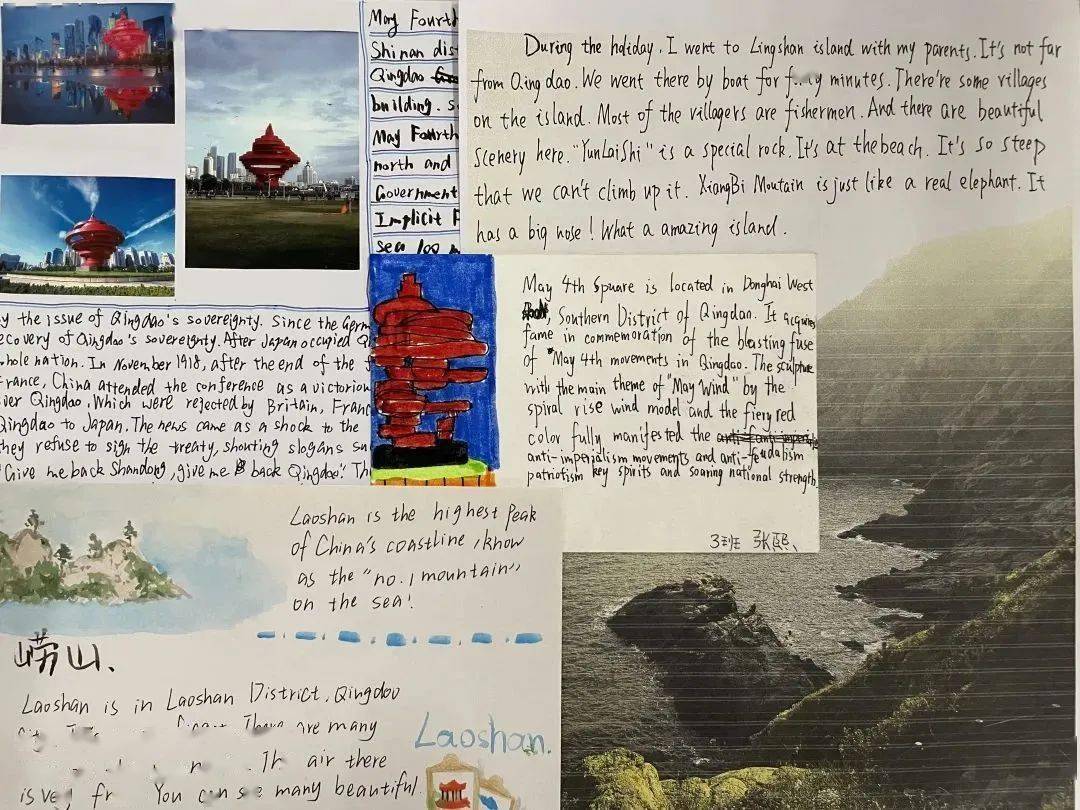 May Fourth
Shinan dis
Qingdao
building. s
May Fourth
north and
Government
Implicit
sea 100
During the holiday. I went to Lingshan island with my parents. It's not far
from Qingdao. We went there by boat for minutes. There're some villages
on the island. Most of the villagers are fishermen. And there are beautiful
scenery here. "YunLaiShi" is a special rock. It's at the beach. It's so steep
that we can't climb up it. XiangBi Moutain is just like a real elephant. It
has a big nose! What a amazing island.
May 4th Square is located in Donghai West
Southern District of Qingdao. It acquires
fame in commemoration of the blasting fuse
of "May 4th movements in Qingdao. The sculpture
with the main theme of "May Wind" by the
spiral rise wind model and the fiery red
color fully manifested the
anti-imperialism movements and anti-feudalism
patriotism key spirits and soaring national strength
3班
y the issue of Qingdao's sovereignty. Since the Germ
ecovery of Qingdao's sovereignty. After Japan occupied Q
hole nation. In November 1918, after the end of the
rance, China attended the conference as a victoriou
ver Qingdao. Which were rejected by Britain, Franc
Qingdao to Japan. The news came as a shock to the
they refuse to sign the treaty, shouting slogans su
"Give me back Shandong, give me back Qingdao". Th
Laoshan is the highest peak
of China's coastline, know
as the "no.1 mountain"
on the sea!
崂山、
Laoshan is in Laoshan District, Qingdou
There are many
air there
is very You can see many beautiful
Laoshan.